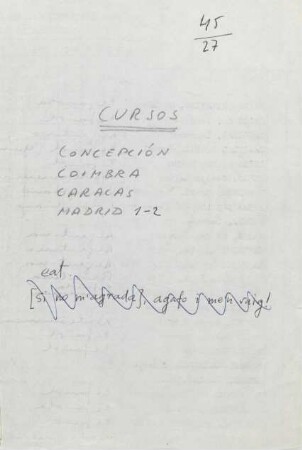 45
27
CURSOS
CONCEPCIÓN
COIMBRA
CARACAS
MADRID 1-2
cat.
[si no m'agrada], agafo i me'n vaig!